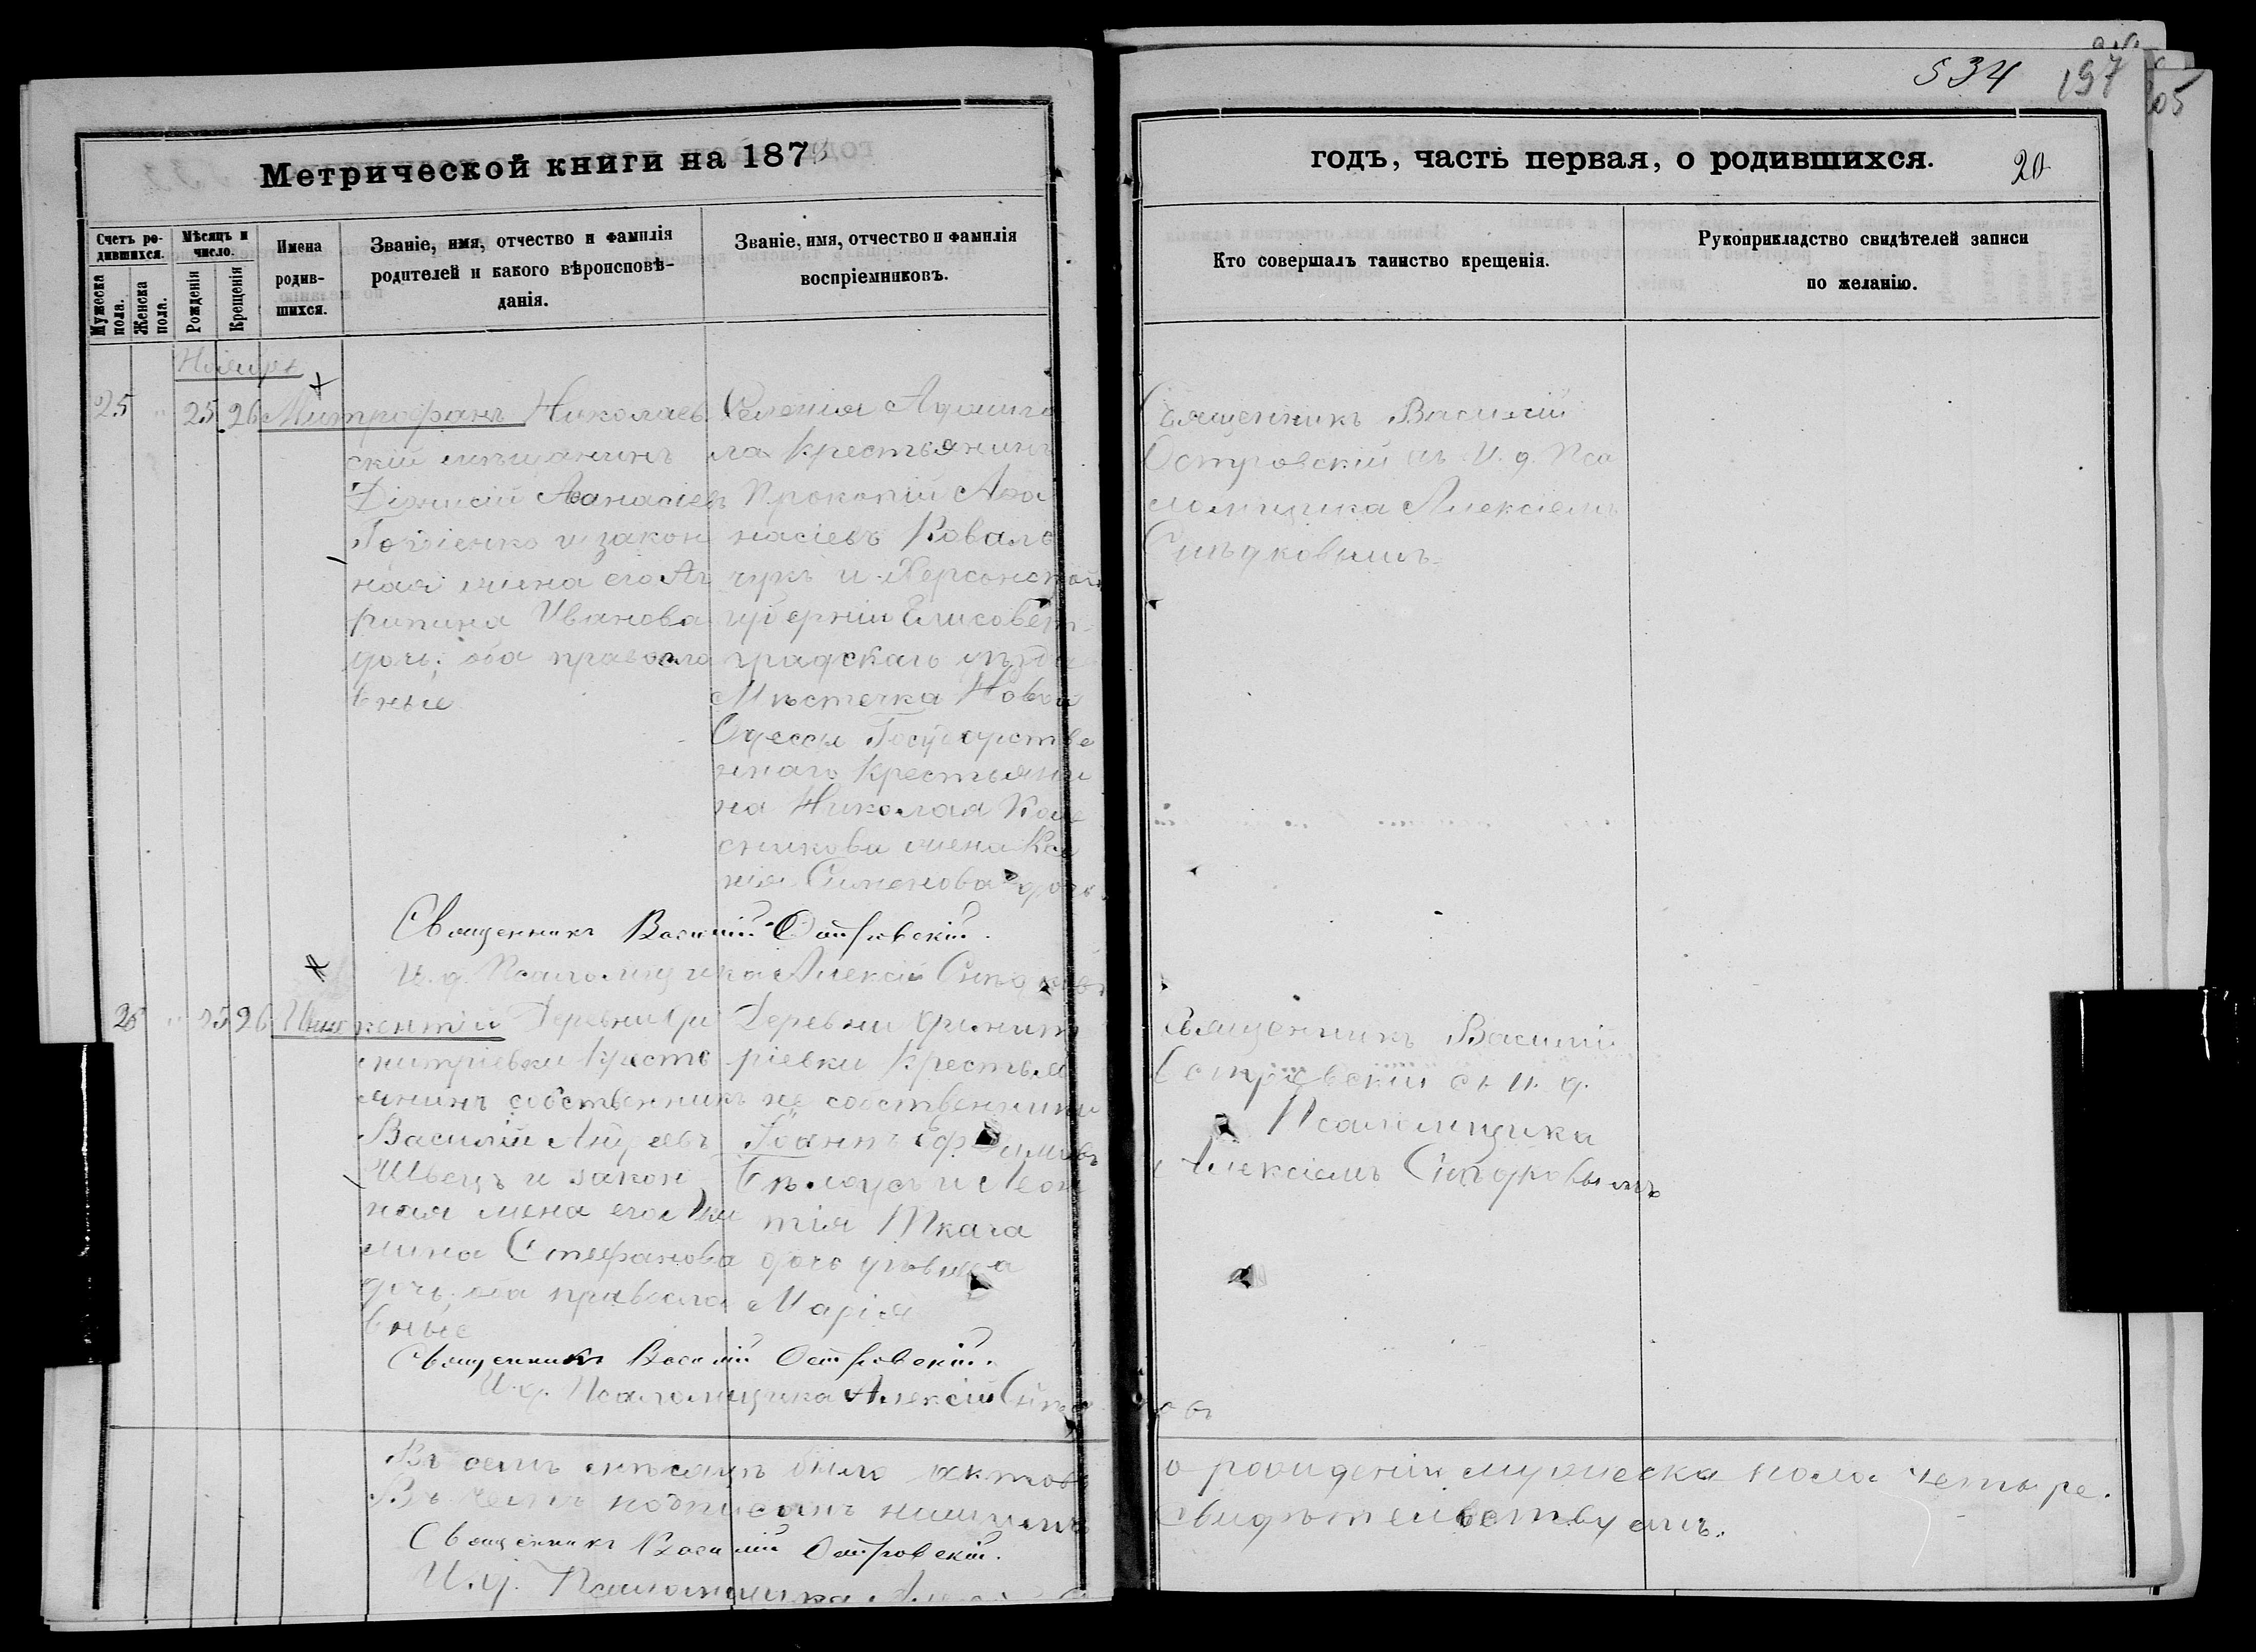 534
197
205
Метрической книги на 1873
годъ, часть первая, о родившихся.
20
Счетъ родившихся.
Мужеска пола.
Женска пола.
Мѣсяцъ и число.
Рожденія
Крещенія
Имена родившихся.
Званіе, имя, отчество и фамилія родителей и какого вѣроисповѣданія.
Званіе, имя, отчество и фамилія воспріемниковъ.
Кто совершалъ таинство крещенія.
Рукоприкладство свидѣтелей записи по желанію.
Ноября
25 " 25 26 Митрофанъ
Николаев
скій мѣщанинъ
Діонисій Аѳанасіевъ
и закон
ная жена его Аг
рипина Иванова
дочь, оба правосла
вные
Селенія
ла Крестьянинъ
Прокопій Аѳа
насіевъ Коваль
чукъ и Херсонской
губерніи Елисовет-
градскаго уѣзда
Мѣстечка Новой
Одессы Государстве
ннаго Крестьяни
на Николая Коле
сникова жена Ксе
нія Симеонова дочь.
Священникъ Василій
Островскій съ И. д. Пса
ломщика Алексіемъ
Священникъ Василій Островскій.
И. д. Псаломщика Алексій
26 " 25 26 Иннокентій
Деревни
митріевки Кресть
янинъ собственникъ
Василій Андреевъ
Швецъ и закон
ная жена его Аки
лина Стефанова
дочь, оба правосла
вные
Деревни
ріевки Крестья
не собственники
Іоаннъ Ефимовъ
Бѣлоусъ и Леон
тія Ткача
дочь дѣвица
Марія
Священникъ Василій
Островскій съ И. д.
Псаломщика
Алексіемъ
Священникъ Василій Островскій.
И. д. Псаломщика Алексій
Въ семъ мѣсяцѣ было актовъ о рожденіи мужеска пола четыре.
Въ чемъ подписомъ нашимъ свидѣтельствуемъ.
Священникъ Василій Островскій.
И. д. Псаломщика